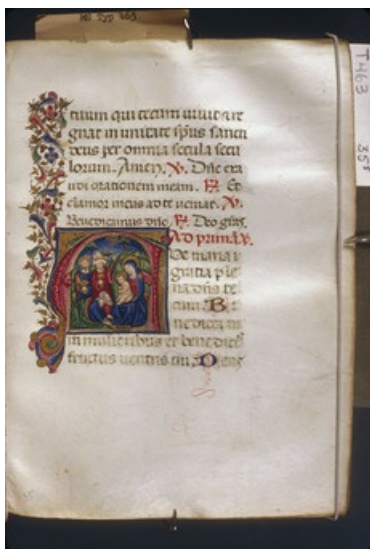 MS Typ 463
T463
35r
tuum qui tecum uiuit et re
gnat in unitate sp̄us sancti
deus per omnia secula secu
lorum. Amen. V. Dn̄e exa
udi orationem meam. R. Et
clamor meus ad te ueniat. V.
Benedicamus dn̄o. R. Deo grās.
Ad primā. v.
Ue maria
gratia ple
na dn̄s te
cum. Be
nedicta tu
in mulieribus et benedict
fructus uentris tui. Deus